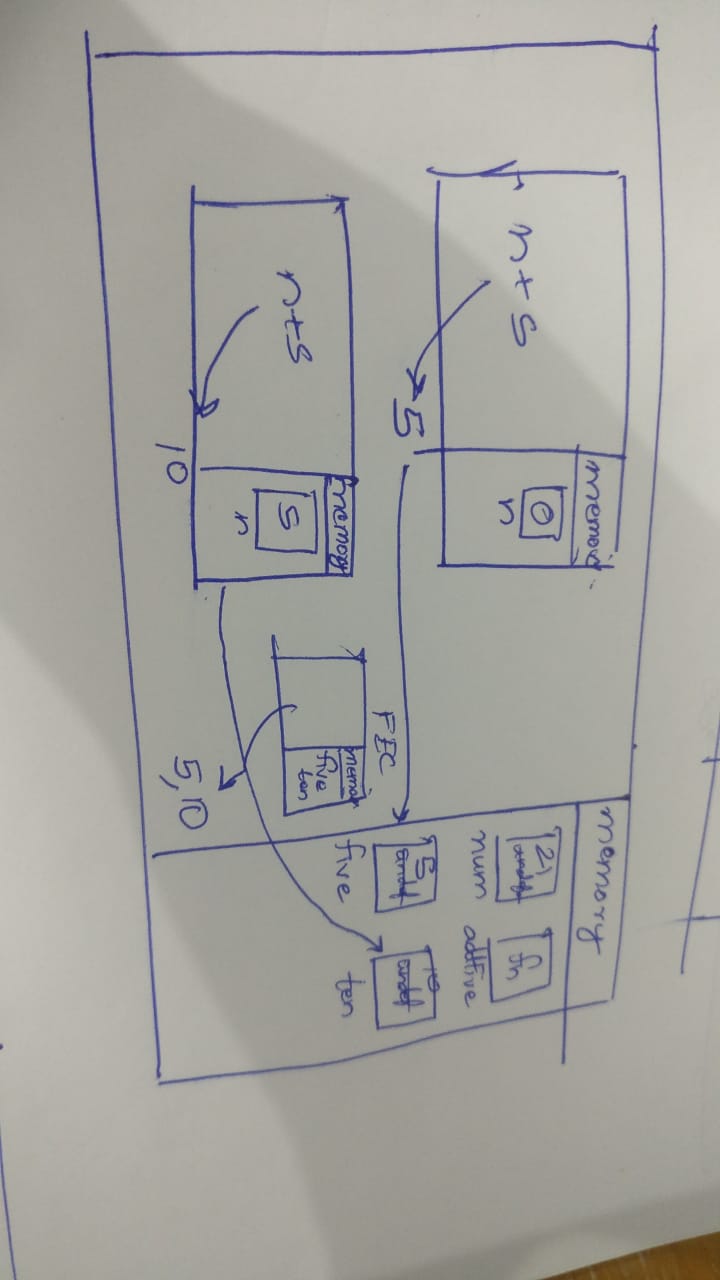 memory
n + 5
0
n
5
memory
n+5
5
n
10
FEC
memory
five
ten
5,10
memory
21
undef
num
fn
addfive
5
undef
five
10
undef
ten